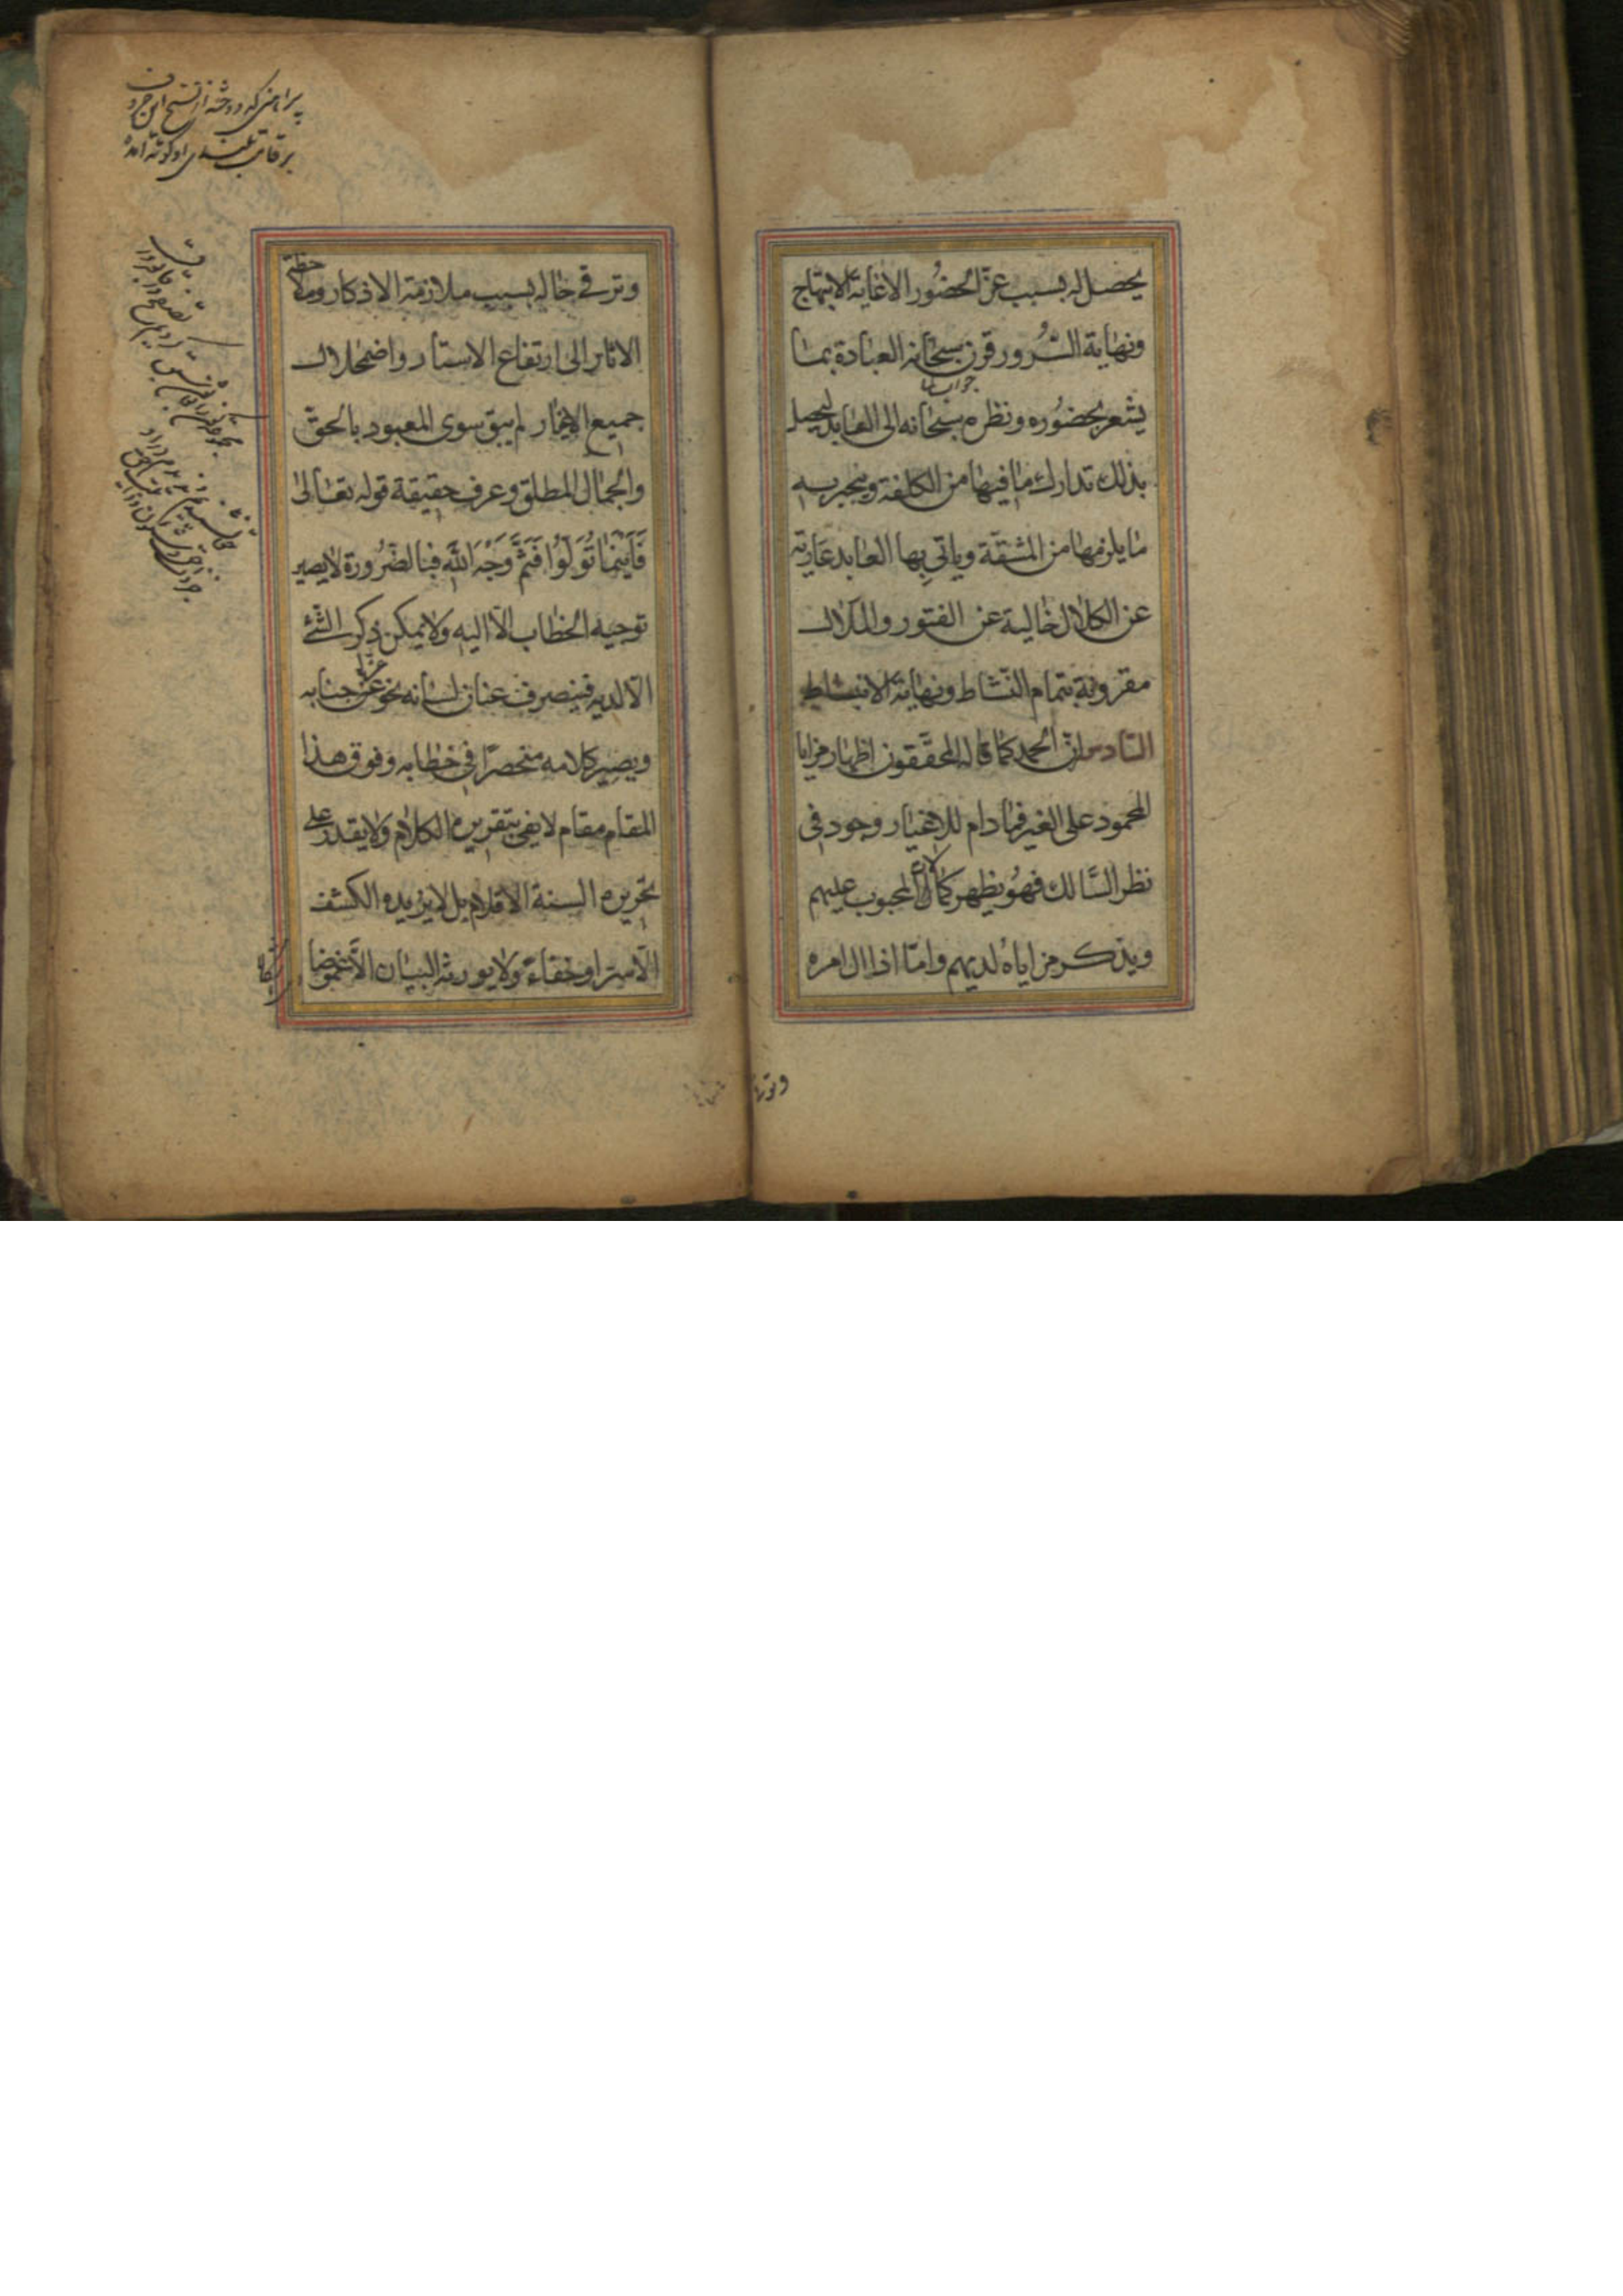 يحصل له بسبب عز الحضور الا غاية الابتهاج
ونهاية السُرور قرن سبحانه العبادة بما
جواب لما
يشعر بحضوره ونظره سبحانه الى العابد ليحصل
بذلك تدارك ما فيها من الكلفة وينجبر به
ما يلزمها من المشقة وياتى بها العابد عارية
عن الكلال خالية عن الفتور والملال
مقرونة بتمام النشاط ونهاية الانبساط
السادس ان الحمد كما قاله المحققون اظهار مزايا
المحمود على الغير فما دام للاغيار وجود فى
نظر السالك فهو يظهر كمالات المحبوب عليهم
ويذكر مزاياه لديهم واما اذا ال امره
وترقى حاله بسبب ملازمة الاذكار وملاحظة
الاثار الى ارتفاع الاستار واضمحلال
جميع الاغيار لم يبق سوى المعبود بالحق
والجمال المطلق وعرف حقيقة قوله تعالى
فَاَيْنَمَا تُوَلُّوا فَثَمَّ وَجْهُ اللّٰهِ فبالضرورة لا يصير
توجيه الخطاب الا اليه ولا يمكن ذكر الشئ
الا لديه فينصرف عنان لسانه نحو عز جنابه
ويصير كلامه منحصرًا فى خطابه وفوق هذا
المقام مقام لا يفى بتقريره الكلام ولا يقدر على
تحريره السنة الاقلام بل لا يزيده الكشف
الا سترا وخفاءً ولا يورثه البيان الا غموضا